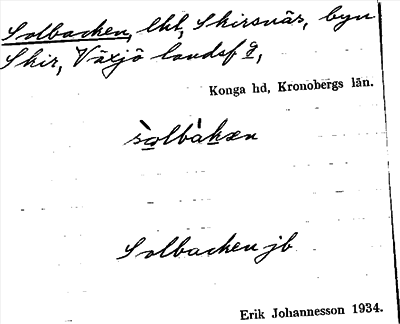 Solbacken, lht, Skirsnäs, byn
Skir, Växjö landsf g,
Konga hd, Kronobergs län.
sòlbàkæn
Solbacken jb
Erik Johannesson 1934.